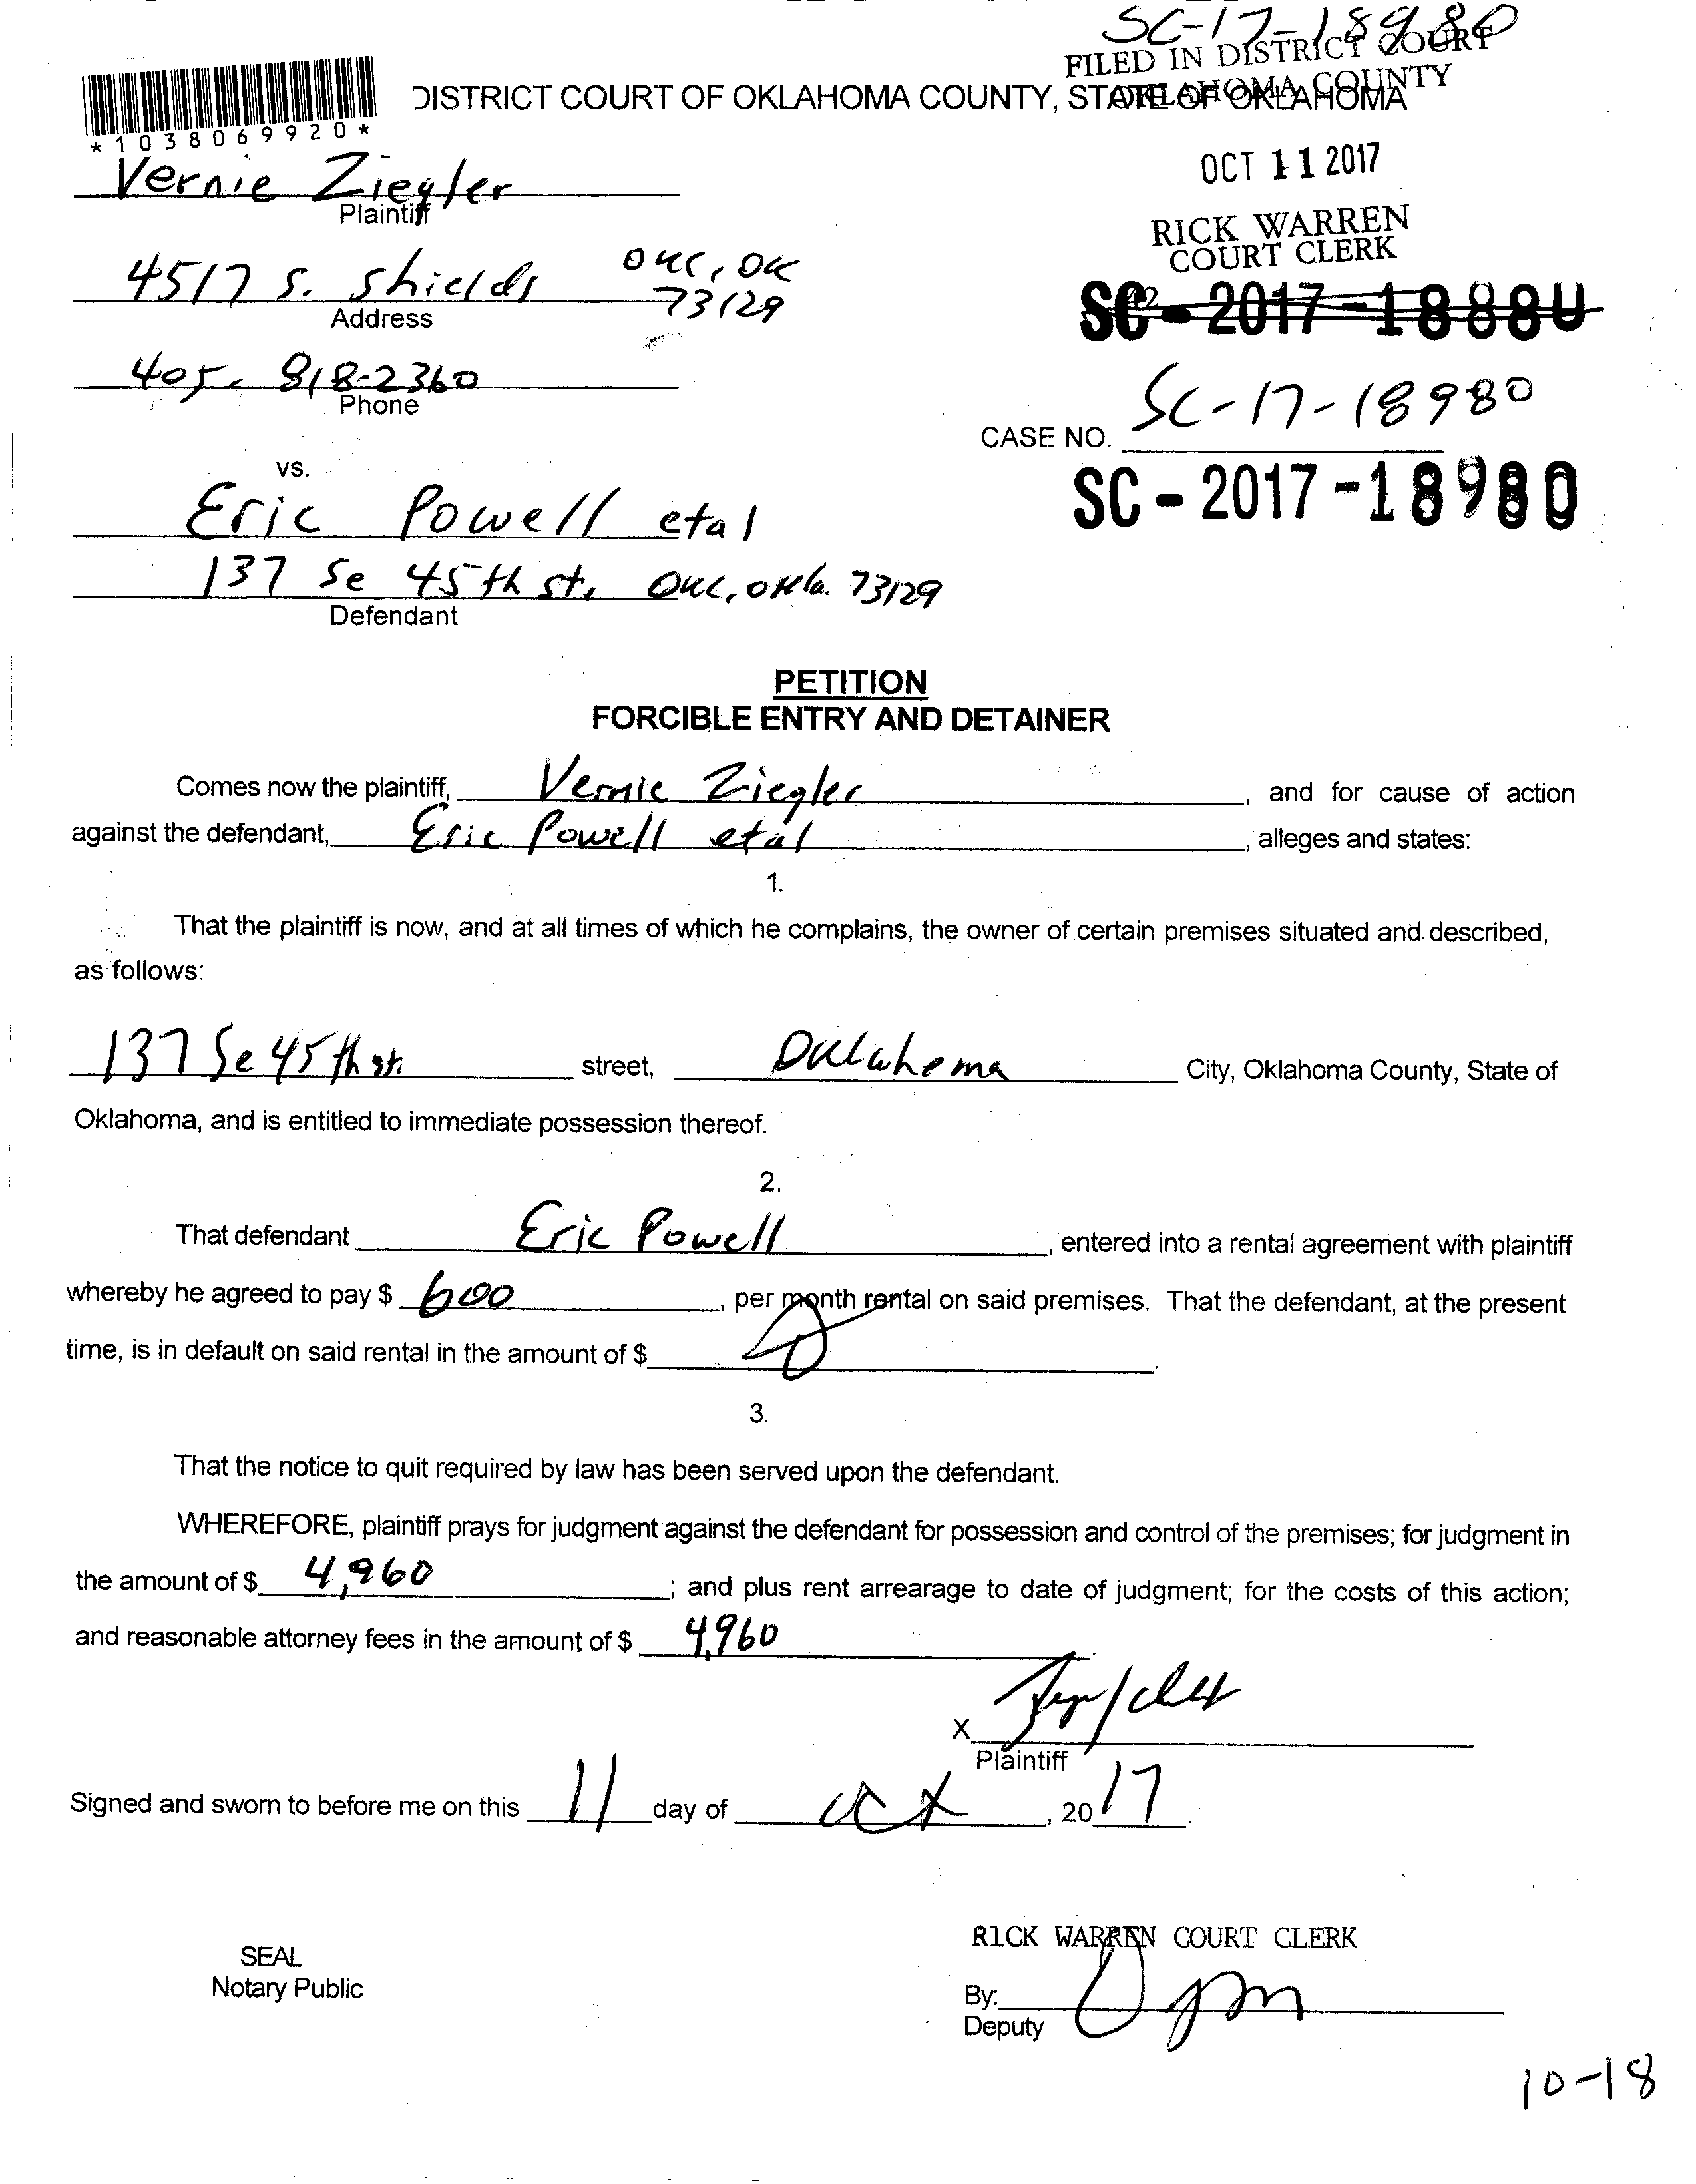 SC-17-18980
FILED IN DISTRICT COURT
OKLAHOMA COUNTY
DISTRICT COURT OF OKLAHOMA COUNTY, STATE OF OKLAHOMA
*1038069920*
OCT 11 2017
Vernie Ziegler
Plaintiff
RICK WARREN
COURT CLERK
4517 S. Shields OKC, OK
73129
Address
42
SC-2017-1888U
405-818-2360
Phone
SC-17-18980
CASE NO.
vs.
SC-2017-18980
Eric Powell etal
137 Se 45th st, OKC, okla. 73129
Defendant
PETITION
FORCIBLE ENTRY AND DETAINER
Comes now the plaintiff, Vernie Ziegler, and for cause of action
against the defendant, Eric Powell etal, alleges and states:
1.
That the plaintiff is now, and at all times of which he complains, the owner of certain premises situated and described,
as follows:
137 Se 45th st. street, Oklahoma City, Oklahoma County, State of
Oklahoma, and is entitled to immediate possession thereof.
2.
That defendant Eric Powell, entered into a rental agreement with plaintiff
whereby he agreed to pay $ 600, per month rental on said premises. That the defendant, at the present
time, is in default on said rental in the amount of $ 0.
3.
That the notice to quit required by law has been served upon the defendant.
WHEREFORE, plaintiff prays for judgment against the defendant for possession and control of the premises; for judgment in
the amount of $ 4,960; and plus rent arrearage to date of judgment; for the costs of this action;
and reasonable attorney fees in the amount of $ 4,960.
X
Plaintiff
Signed and sworn to before me on this 11 day of Oct, 2017.
RICK WARREN COURT CLERK
SEAL
Notary Public
By:
Deputy
10-18